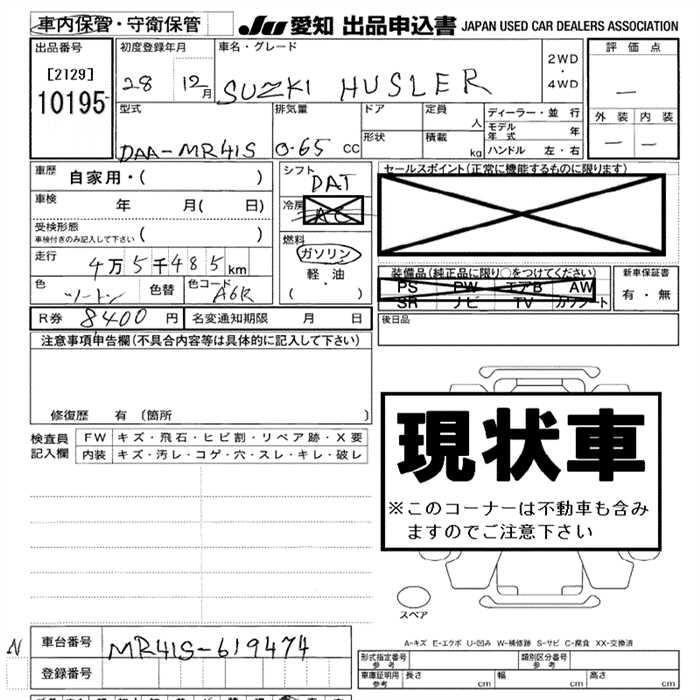 車内保管・守衛保管
JU 愛知 出品申込書 JAPAN USED CAR DEALERS ASSOCIATION
出品番号
[2129]
10195
初度登録年月
28 12月
車名・グレード
SUZKI HUSLER
2WD
・
4WD
評価点
―
外装 内装
― ―
型式
DAA-MR41S
排気量
0.65 cc
ドア
形状
定員
人
積載
kg
ディーラー・並行
モデル年式 年
ハンドル 左・右
車歴
自家用・( )
車検 年 月( 日)
受検形態
車検付きのみ記入して下さい ( )
走行
4万5千485km
色 ツートン 色替 色コード A6R
シフト
DAT
冷房
AC
燃料
ガソリン
軽・油
( ・ )
セールスポイント(正常に機能するものに限ります)
装備品(純正品に限り○をつけてください)
PS PW エアB AW
SR ナビ TV カワシート
新車保証書
有・無
R券 8400円 名変通知期限 月 日
後日品
注意事項申告欄(不具合内容等は具体的に記入して下さい)
修復歴 有(箇所 )
検査員記入欄
FW キズ・飛石・ヒビ割・リペア跡・X要
内装 キズ・汚レ・コゲ・穴・スレ・キレ・破レ
現状車
※このコーナーは不動車も含み
ますのでご注意下さい
スペア
A-キズ E-エクボ U-凹み W-補修跡 S-サビ C-腐食 XX-交換済
N
車台番号 MR41S-619474
登録番号
形式指定番号
参考
類別区分番号
参考
車庫証明用
参考
長さ cm 幅 cm 高さ cm